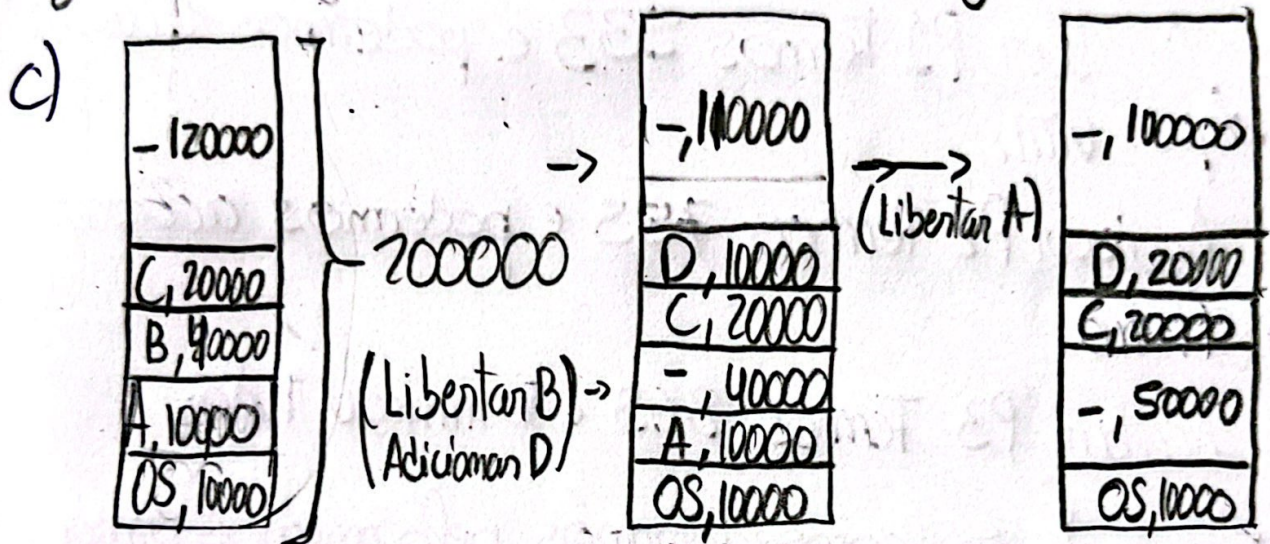 c)
- 120000
C, 20000
B, 40000
A, 10000
OS, 10000
200000
(Libertar B) →
(Adicionar D)
→
-, 110000
D, 10000
C, 20000
-, 40000
A, 10000
OS, 10000
→
(Libertar A)
-, 100000
D, 20000
C, 20000
-, 50000
OS, 10000